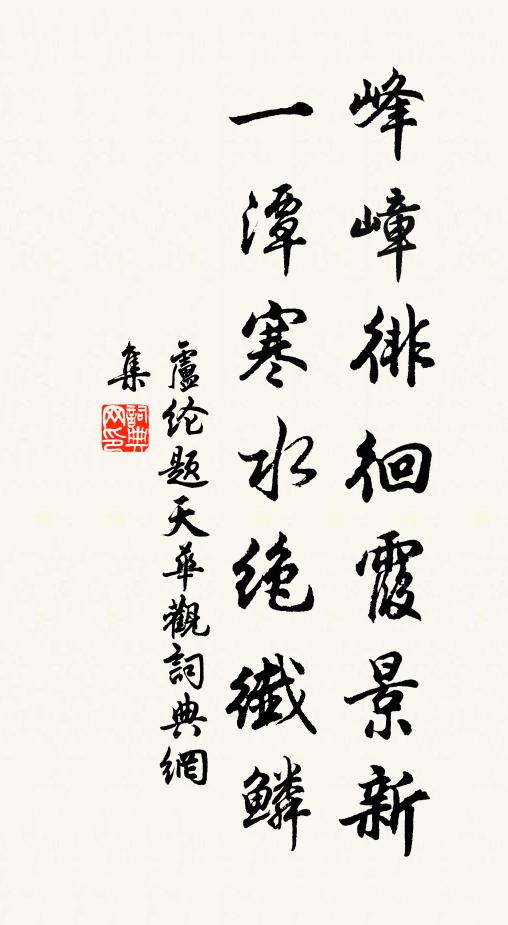 峰嶂徘徊霞景新
一潭寒水绝纖鳞
盧纶题天华觀詞典網
集
詞典
网印